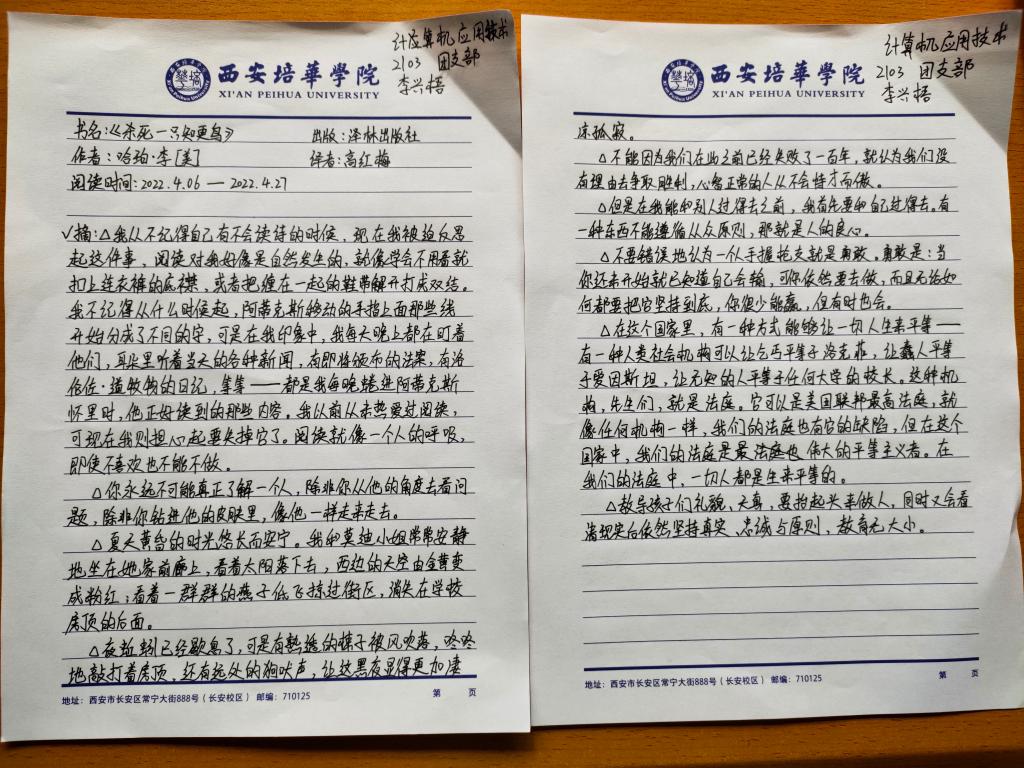 计应算机应用技术
2103 团支部
李兴梧
西安培華學院
XI'AN PEIHUA UNIVERSITY
书名:《杀死一只知更鸟》 出版:泽林出版社
作者:哈珀·李[美] 译者:高红梅
阅读时间:2022.4.06 — 2022.4.27
√摘:△我从不记得自己有不会读诗的时候,现在我被迫反思
起这件事,阅读对我好像是自然发生的,就像学会不用看就
扣上连衣裤的底襟,或者把缠在一起的鞋带解开打成双结。
我不记得从什么时候起,阿蒂克斯移动的手指上面那些线
开始分成了不同的字,可是在我印象中,我每天晚上都在盯着
他们,耳朵里听着当天的各种新闻,有即将颁布的法案,有洛
伦佐·道牧物的日记,等等——都是我每晚矮进阿蒂克斯
怀里时,他正好读到的那些内容。我以前从未热爱过阅读,
可现在我则担心起要失掉它了。阅读就像一个人的呼吸,
即使不喜欢也不能不做。
△你永远不可能真正了解一个人,除非你从他的角度去看问
题,除非你钻进他的皮肤里,像他一样走来走去。
△夏天黄昏的时光悠长而安宁。我和莫迪小姐常常安静
地坐在她家前廊上,看着太阳落下去,西边的天空由金黄变
成粉红;看着一群群的燕子低飞掠过街区,消失在学校
房顶的后面。
△夜蚯蚓已经歇息了,可是有熟透的楝子被风吹落,咚咚
地敲打着房顶,还有远处的狗吠声,让这黑夜显得更加凄
地址:西安市长安区常宁大街888号(长安校区) 邮编:710125 第 页
计算机应用技术
2103 团支部
李兴梧
西安培華學院
XI'AN PEIHUA UNIVERSITY
凉孤寂。
△不能因为我们在此之前已经失败了一百年,就认为我们没
有理由去争取胜利,心智正常的人从不会恃才而傲。
△但是在我能和别人过得去之前,我首先要和自己过得去。有
一种东西不能遵循从众原则,那就是人的良心。
△不要错误地认为一个人手握枪支就是勇敢。勇敢是:当
你还未开始就已知道自己会输,可你依然要去做,而且无论如
何都要把它坚持到底,你很少能赢,但有时也会。
△在这个国家里,有一种方式能够让一切人生来平等——
有一种人类社会机构可以让乞丐平等于洛克菲,让蠢人平等
于爱因斯坦,让无知的人平等于任何大学的校长。这种机
构,先生们,就是法庭。它可以是美国联邦最高法庭,就
像任何机构一样,我们的法庭也有它的缺陷,但在这个
国家中,我们的法庭是最法庭也伟大的平等主义者。在
我们的法庭中,一切人都是生来平等的。
△教导孩子们礼貌,天真,要抬起头来做人,同时又会看
清现实后依然坚持真实,忠诚与原则,教育无大小。
地址:西安市长安区常宁大街888号(长安校区) 邮编:710125 第 页